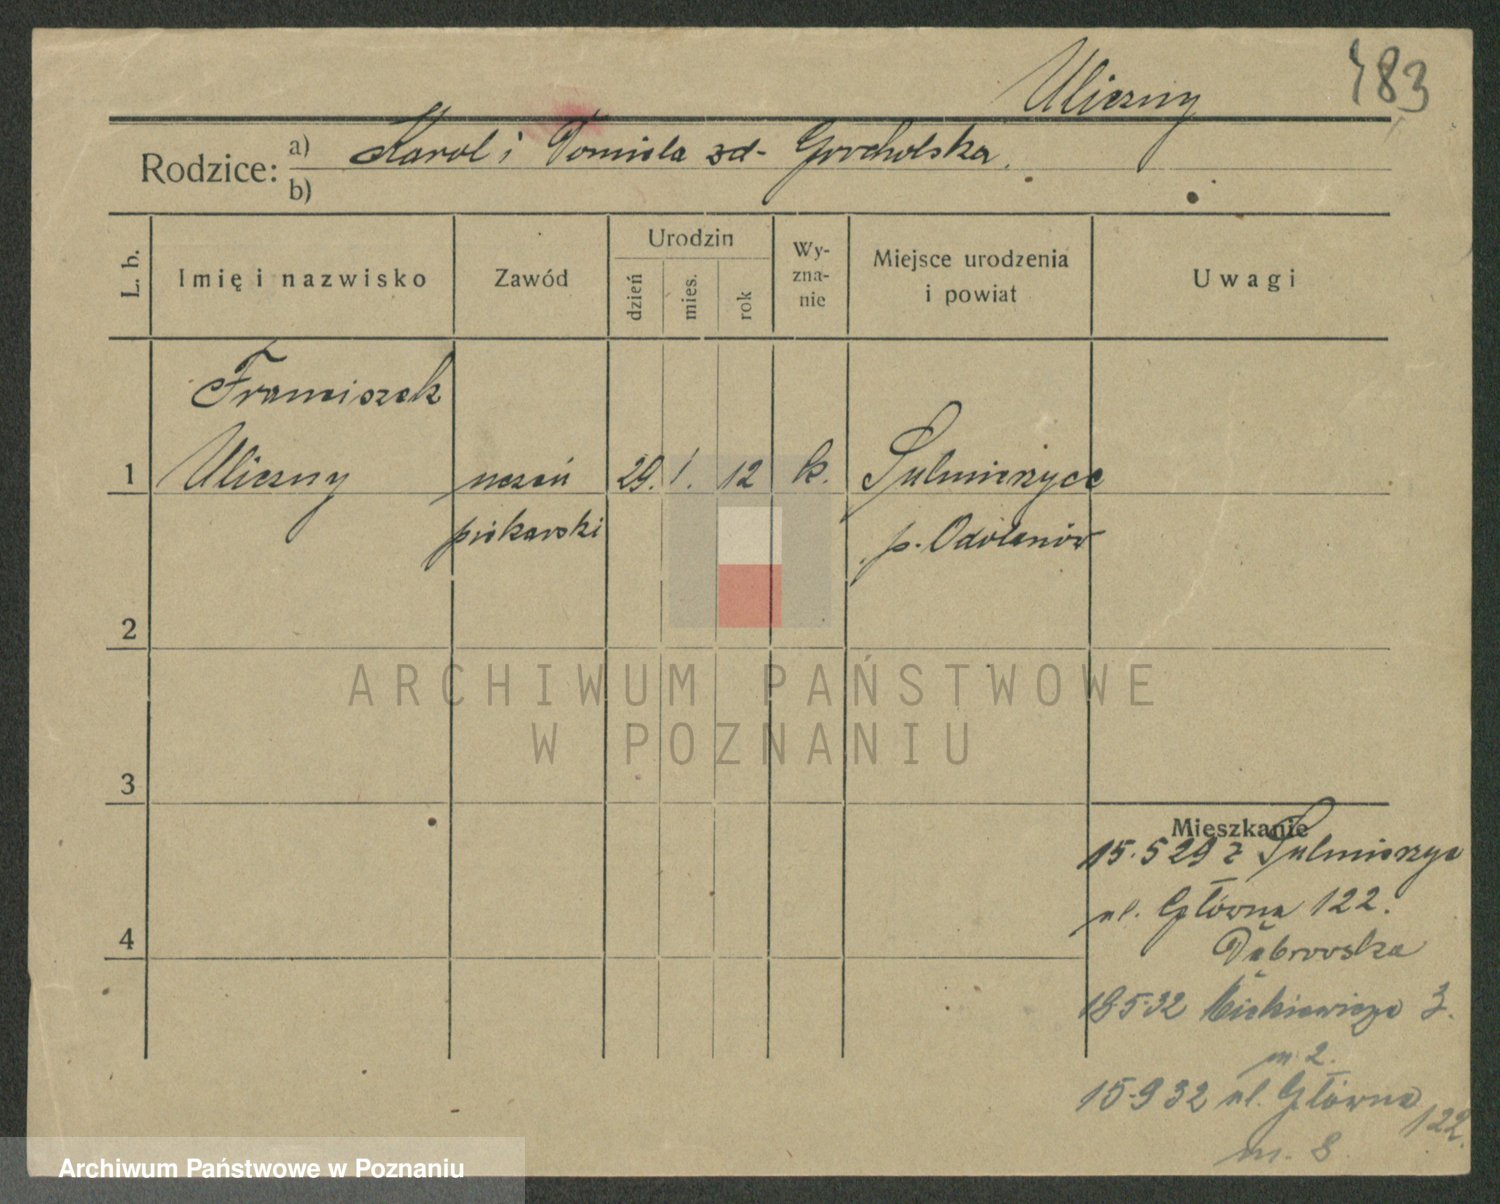 483
Uliczny
Rodzice: a) Karol i Pomiela zd- Grocholska.
b)
L. b.
Imię i nazwisko
Zawód
Urodzin
dzień
mies.
rok
Wy-
zna-
nie
Miejsce urodzenia
i powiat
Uwagi
Franciszek
1 Uliczny uczeń 29. 1. 12 k. Sulmierzyce
piekarski p. Odolanów
2
3
4
Mieszkanie
15.5 29 z Sulmierzyc
ul. Główna 122.
Dąbrowska
18-5-32 Mickiewicza 3.
m 2.
15-9 32 ul. Główna 122.
m. 8
ARCHIWUM PAŃSTWOWE
W POZNANIU
Archiwum Państwowe w Poznaniu